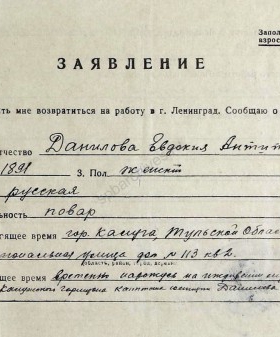 Запол
взрос
ЗАЯВЛЕНИЕ
сть мне возвратиться на работу в г. Ленинград. Сообщаю о
чество Данилова Евдокия Антип
1891 3. Пол женск
русская
льность повар
ящее время гор. Калуга, Тульской Облас
улица дом № 113 кв 2.
область, район, город,
щее время временно нахожусь на иждивении
капитана юстиции